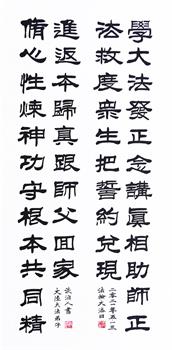 學大法發正念講真相助師正
法救度眾生把誓約兌現
二零二一年五一三
法輪大法日
脩心性煉神功守根本共同精
進返本歸真跟師父回家
大陸大法弟子
人書